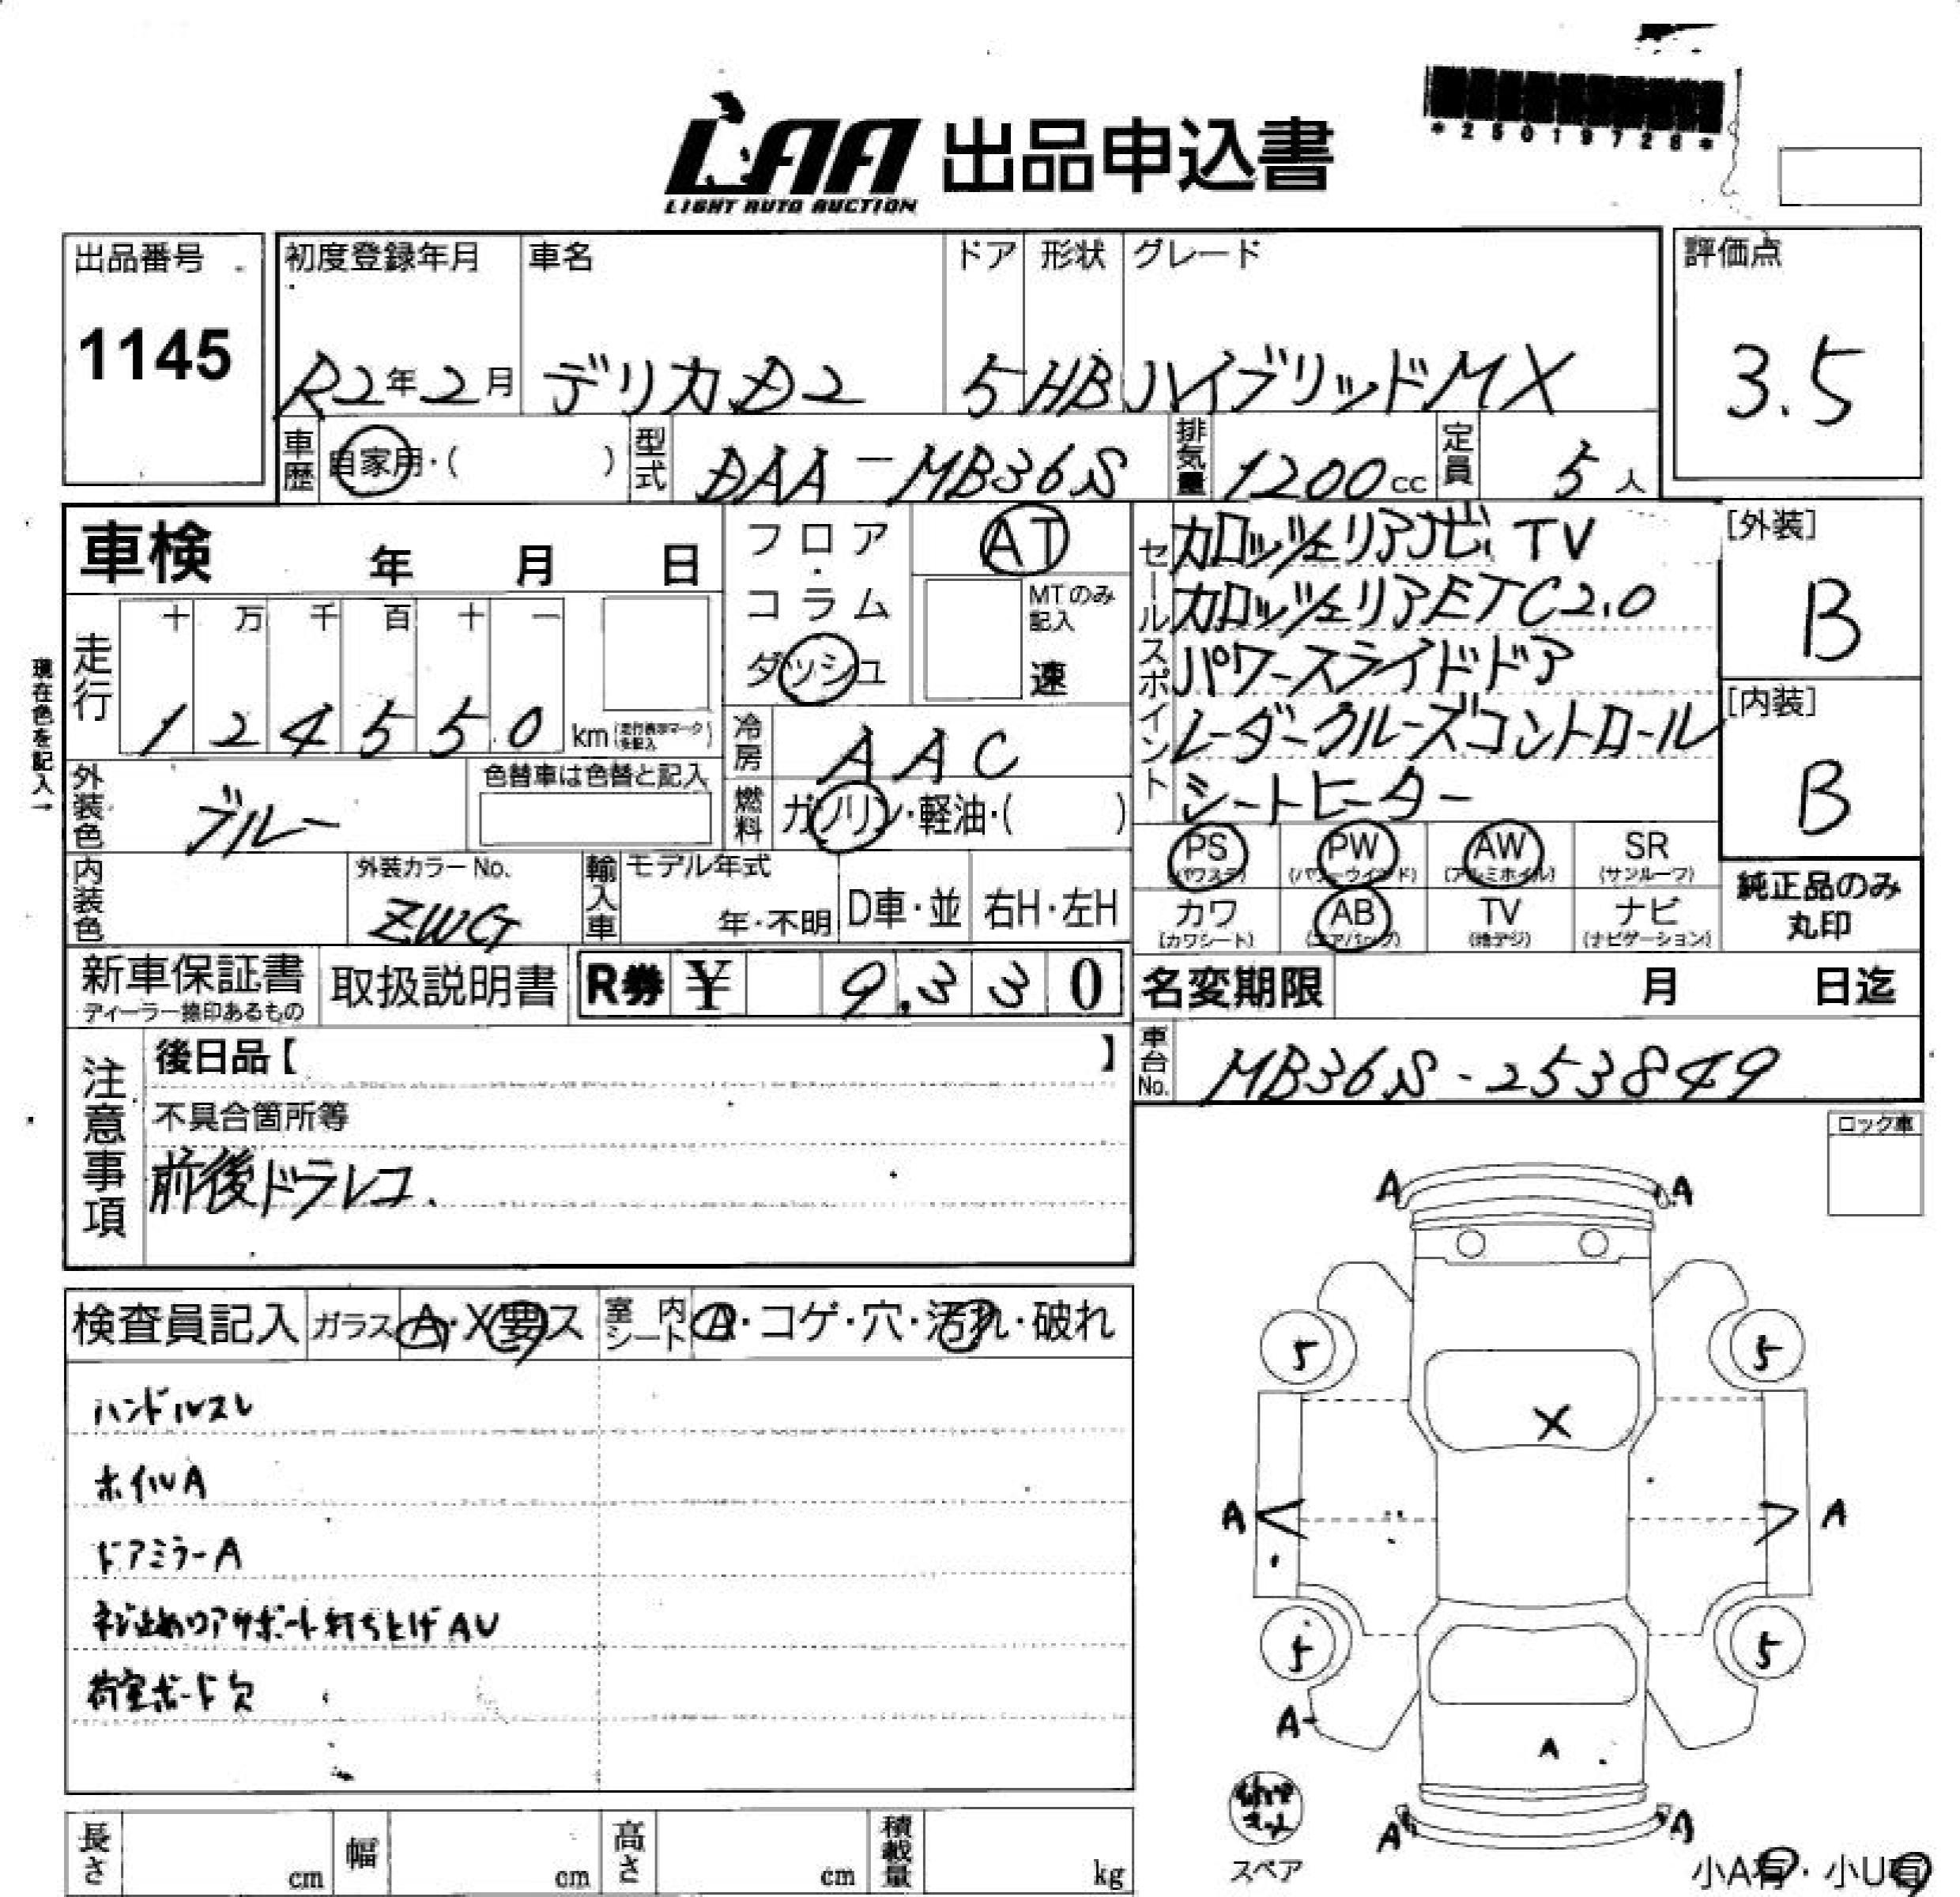 LAA 出品申込書
LIGHT AUTO AUCTION
*25019728*
出品番号
1145
初度登録年月
R2年2月
車名
デリカD2
ドア
5
形状
HB
グレード
ハイブリッドMX
評価点
3.5
車歴 自家用・( )
型式 DAA-MB36S
排気量 1200cc
定員 5人
車検 年 月 日
現在色を記入→
走行
十 万 千 百 十 一
1 2 4 5 5 0 km (走行表示マークを記入)
フロア・コラム
ダッシュ
AT
MTのみ記入
速
冷房 AAC
燃料 ガソリン・軽油・( )
外装色 ブルー
色替車は色替と記入
内装色
外装カラーNo.
ZWG
輸入車
モデル年式
年・不明
D車・並
右H・左H
セールスポイント
カロッツェリアナビ、TV
カロッツェリアETC2.0
パワースライドドア
レーダークルーズコントロール
シートヒーター
[外装]
B
[内装]
B
PS (パワステ)
PW (パワーウインド)
AW (アルミホイル)
SR (サンルーフ)
カワ (カワシート)
AB (エアバック)
TV (地デジ)
ナビ (ナビゲーション)
純正品のみ丸印
新車保証書
ディーラー捺印あるもの
取扱説明書
R券 ¥ 9,330
名変期限 月 日迄
車台No. MB36S-253849
注意事項
後日品【 】
不具合箇所等
前後ドラレコ.
ロック車
検査員記入
ガラス A・X(要)ス
室内シート A・コゲ・穴・汚れ・破れ
ハンドルスレ
ホイルA
ドアミラーA
ネジ止めリアサポート打ち上げAU
荷室ボード欠
A A
5 5
X
A A
5 5
A
A
A A
スペア
小A有・小U有
長さ cm
幅 cm
高さ cm
積載量 kg